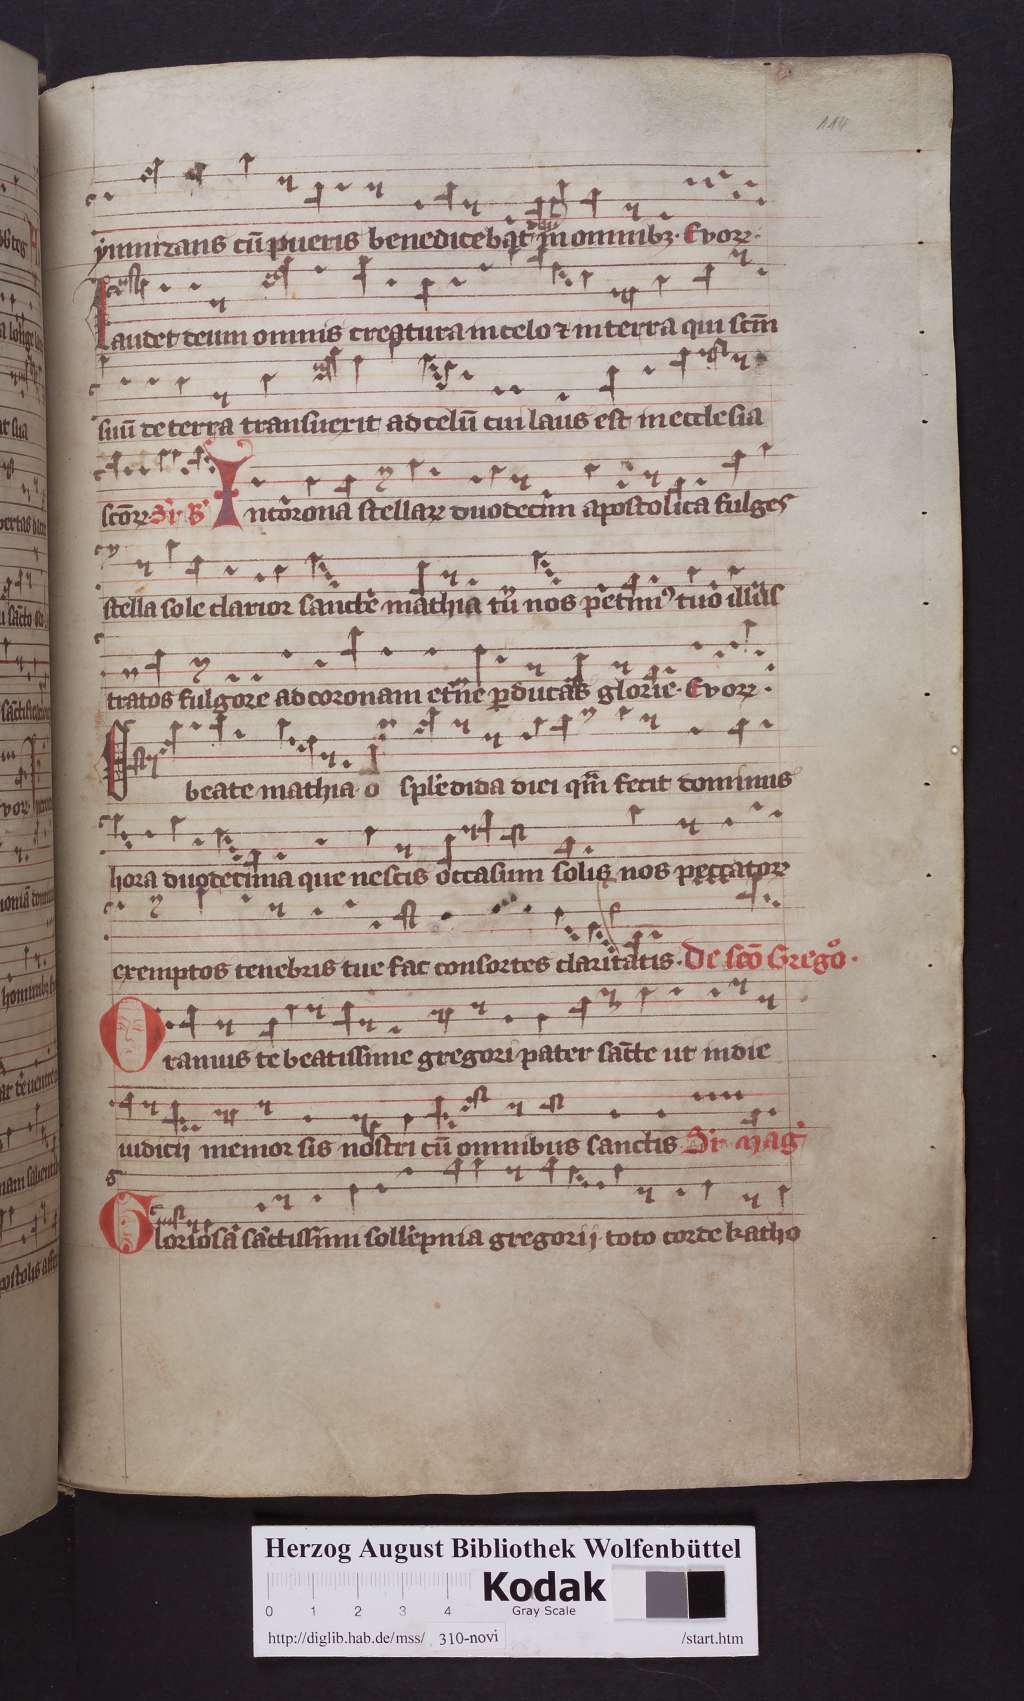 114
ymnizans cu̅ pueris benedicebat dn̅m omnibꝫ. Evoꝝ.
Laudet deum omnis creatura in celo ⁊ in terra qui scm̅
suu̅ de terra transuexit ad celu̅ cui laus est in ecclesia
scoꝝ In corona stellaꝝ duodecim apostolica fulges
stella sole clarior sancte mathia tu nos petimꝰ tuo illus
tratos fulgore ad coronam etn̅e ꝑducas glorie. Evoꝝ.
O beate mathia o splēdida diei qm̅ fecit dominus
hora duodecima que nescis occasum solis nos peccatoꝝ
exemptos tenebris tue fac consortes claritatis. De scō Grego.
Oramus te beatissime gregori pater sācte ut in die
iudicii memor sis nostri cū omnibus sanctis Sr̅ Mag
Gloriosa sāctissimi sollēpnia gregorii toto corde katho
Herzog August Bibliothek Wolfenbüttel
0 1 2 3 4 Kodak Gray Scale
http://diglib.hab.de/mss/ 310-novi /start.htm